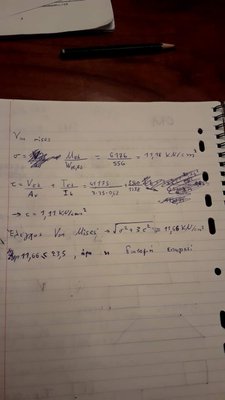 Von mises
σ = M_Ed / W_el,Ed = 6186 / 556 = 11,16 KN/cm²
τ = V_Ed / A_v + T_Ed / I_t =
→ τ = 1,11 KN/cm²
Έλεγχος Von Mises → √σ²+3τ² = 11,66 KN/cm²
11,66 ≤ 23,5 , άρα η διατομή επαρκεί